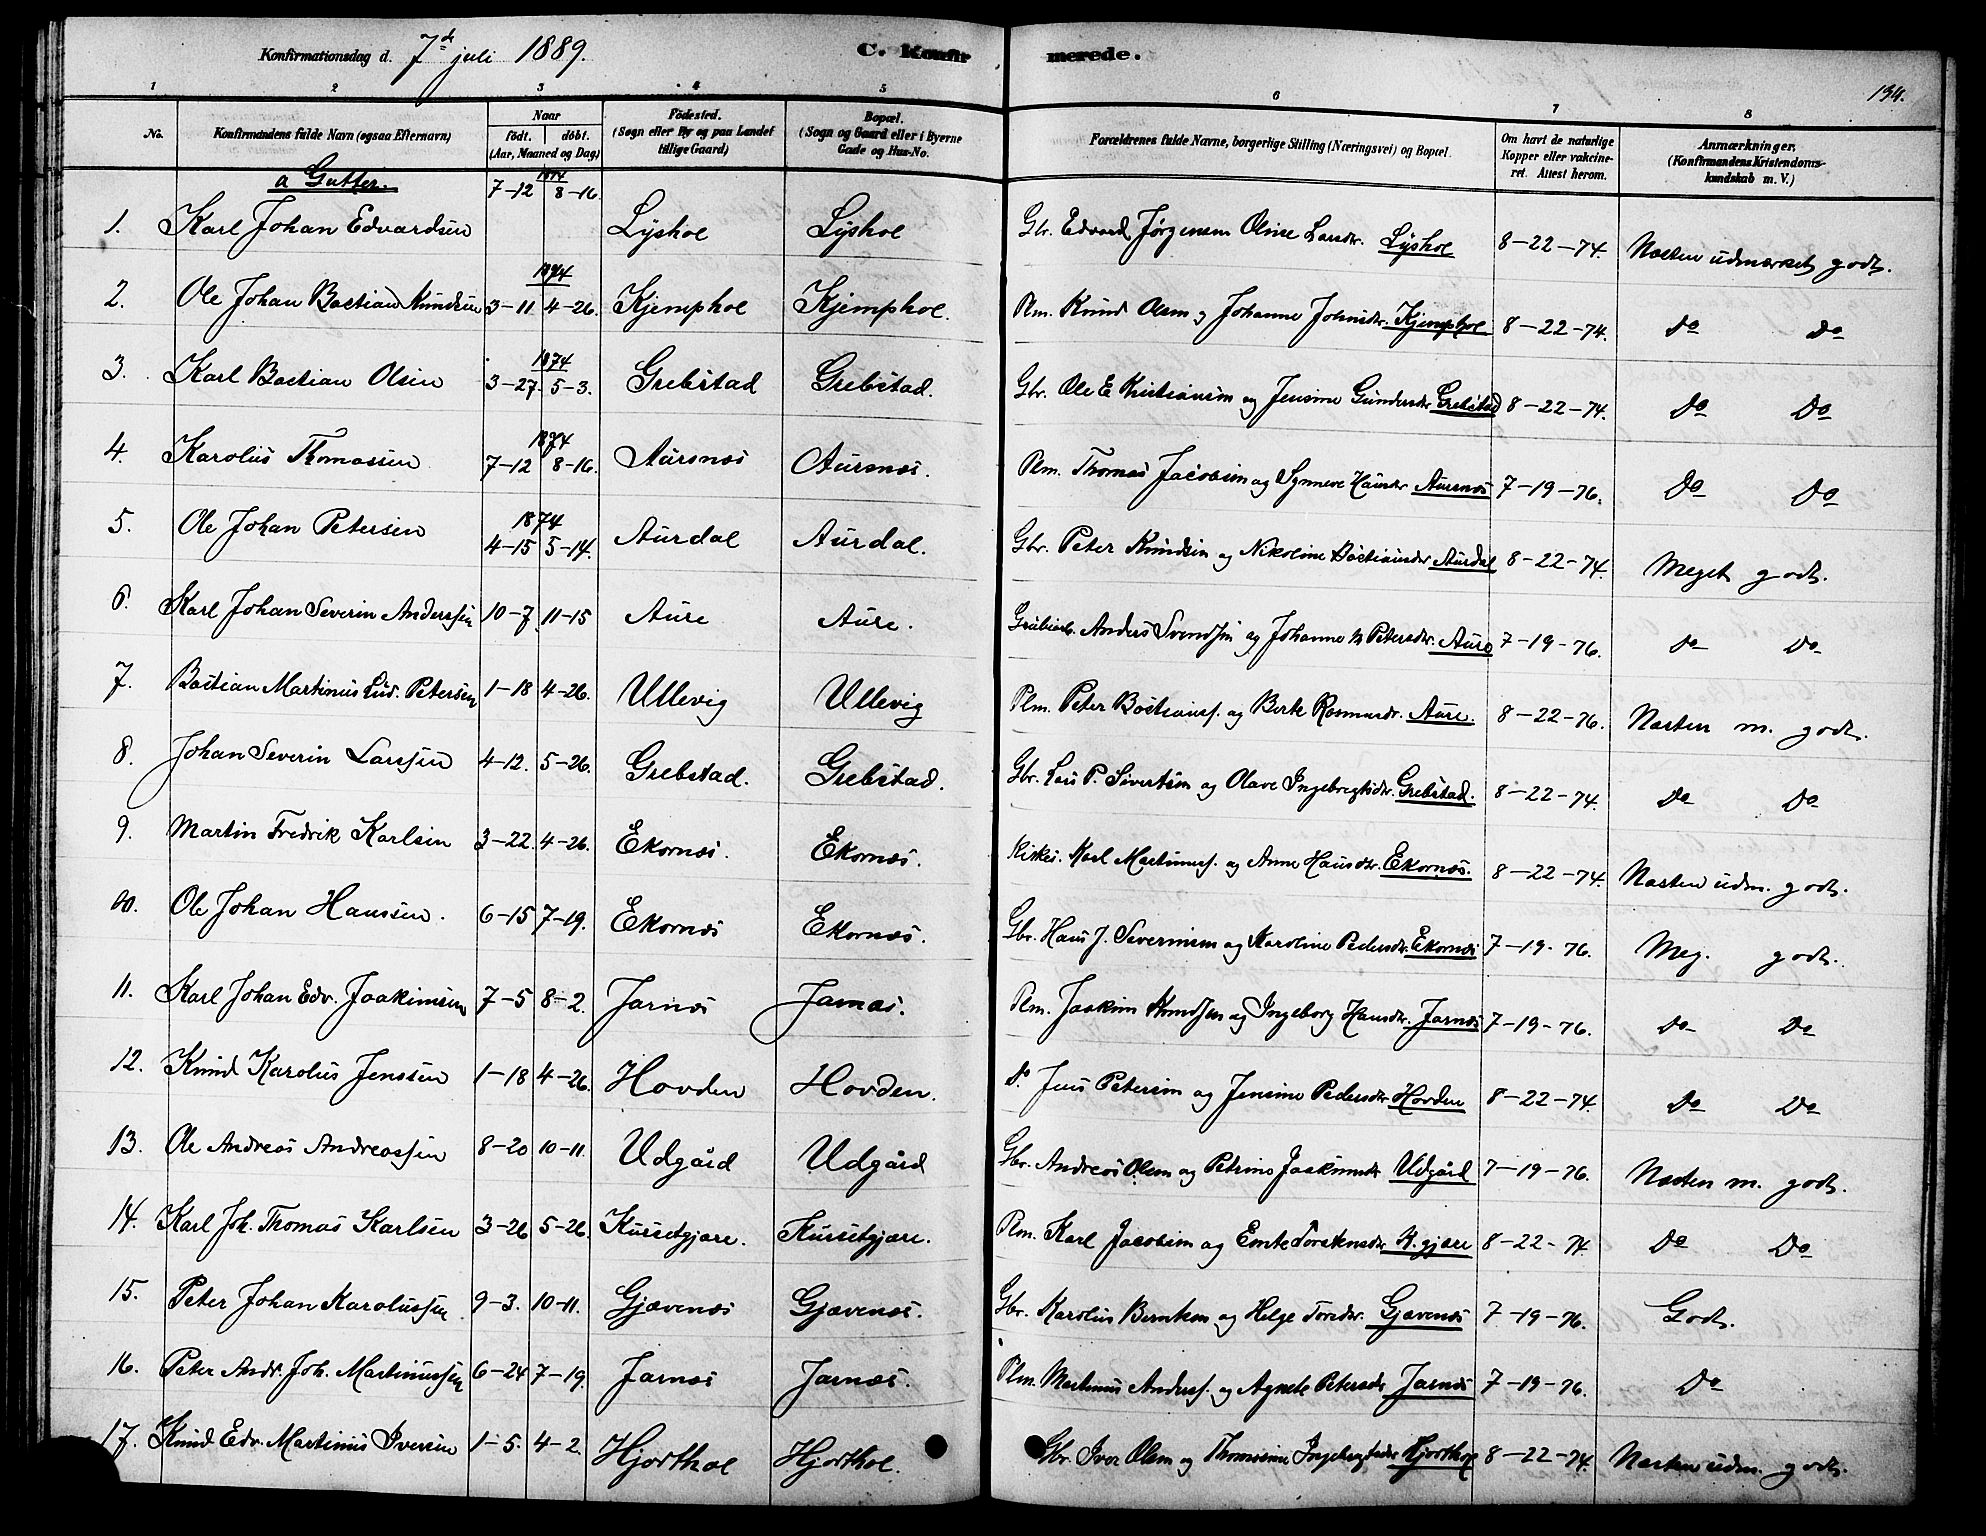 Konfirmationsdag d. 7de juli 1889. C. Konfirmerede.
134.
1 2 3 4 5 6 7 8
No. Konfirmandens fulde Navn (ogsaa Efternavn) Naar født. døbt. (Aar, Maaned og Dag) Fødested. (Sogn eller By og paa Landet tillige Gaard) Bopæl. (Sogn og Gaard eller i Byerne Gade og Hus-No. Forældrenes fulde Navne, borgerlige Stilling (Næringsvei) og Bopæl. Om havt de naturlige Kopper eller vakcineret. Attest herom. Anmærkninger. (Konfirmandens Kristendomskundskab m. V.)
a Gutter.
1. Karl Johan Edvardsen 1874 7-12 8-16. Lyshol Lyshol Gbr. Edvard Jørgensen Oline Larsdtr. Lyshol 8-22-74. Næsten udmærket godt.
2. Ole Johan Bastian Knudsen 1874 3-11 4-26. Kjemphol Kjemphol. Plm. Knud Olsen og Johanne Johnsdtr. Kjemphol 8-22-74. Do Do
3. Karl Bastian Olsen 1874 3-27. 5-3. Grebstad Grebstad. Gbr. Ole E Kristiansen og Jensine Gundersdtr Grebstad 8-22-74. Do Do
4. Karolus Thomassen 1874 7-12 8-16. Aursnæs Aursnæs. Plm. Thomas Jacobsen og Synneve Hansdtr Aursnæs 7-19-76. Do Do
5. Ole Johan Petersen 1874 4-15 5-14. Aurdal Aurdal. Gbr. Peter Knudsen og Nikoline Bastiansdtr Aurdal 8-22-74. Meget godt.
6. Karl Johan Severin Anderssen 10-7 11-15 Aure Aure. Anders Svendsen og Johanne M Petersdtr. Aure 7-19-76. Do Do
7. Bastian Martinus Lud. Petersen 1-18 4-26. Ullevig Ullevig Plm. Peter Bastians. og Berte Rasmusdtr. Aure. 8-22-76. Næsten m. godt.
8. Johan Severin Larssen 4-12. 5-26. Grebstad. Grebstad. Gbr. Lars P. Sivertsen og Olave Ingebregtsdtr. Grebstad. 8-22-74. Do Do
9. Martin Fredrik Karlsen 3-22. 4-26. Ekornæs. Ekornæs. Kirkes. Karl Martinuss. og Anne Hansdtr. Ekornæs. 8-22-74. Næsten udm. godt.
10. Ole Johan Hanssen. 6-15 7-19. Ekornæs Ekornæs. Gbr. Hans J. Severinsen og Karoline Pedersdtr. Ekornæs 7-19-76. Meg. godt.
11. Karl Johan Edv. Joakimsen 7-5 8-2. Jarnæs Jarnæs. Plm. Joakim Knudsen og Ingeborg Hansdtr. Jarnæs 7-19-76. Do Do
12. Knud Karolus Jenssen 1-18 4-26. Hovden Hovden. Do Jens Petersen og Jensine Pedersdtr Hovden 8-22-74. Do Do
13. Ole Andreas Andreassen 8-20 10-11. Udgård Udgård Gbr. Andreas Olsen og Petrine Joakimsdtr Udgård 7-19-76. Næsten m. godt.
14. Karl Joh. Thomas Karlsen 3-26 5-26. Kursetgjære. Kursetgjære. Plm. Karl Jacobsen og Emte Torstensdtr K.gjære 8-22-74 Do Do
15. Peter Johan Karolussen. 9-3. 10-11. Gjævenæs Gjævenæs. Gbr. Karolus Berntsen og Helge Toredtr. Gjævenæs 7-19-76. Godt.
16. Peter Andr. Joh. Martinussen 6-24 7-19. Jarnæs Jarnæs. Plm. Martinus Anders. og Agnete Petersdtr Jarnæs 7-19-76. Do
17. Knud Edv. Martinus Iversen 1-5. 4-2. Hjorthol Hjorthol. Gbr. Iver Olsen og Thomasine Ingebregtsdtr Hjorthol 8-22-74. Næsten udm. godt.